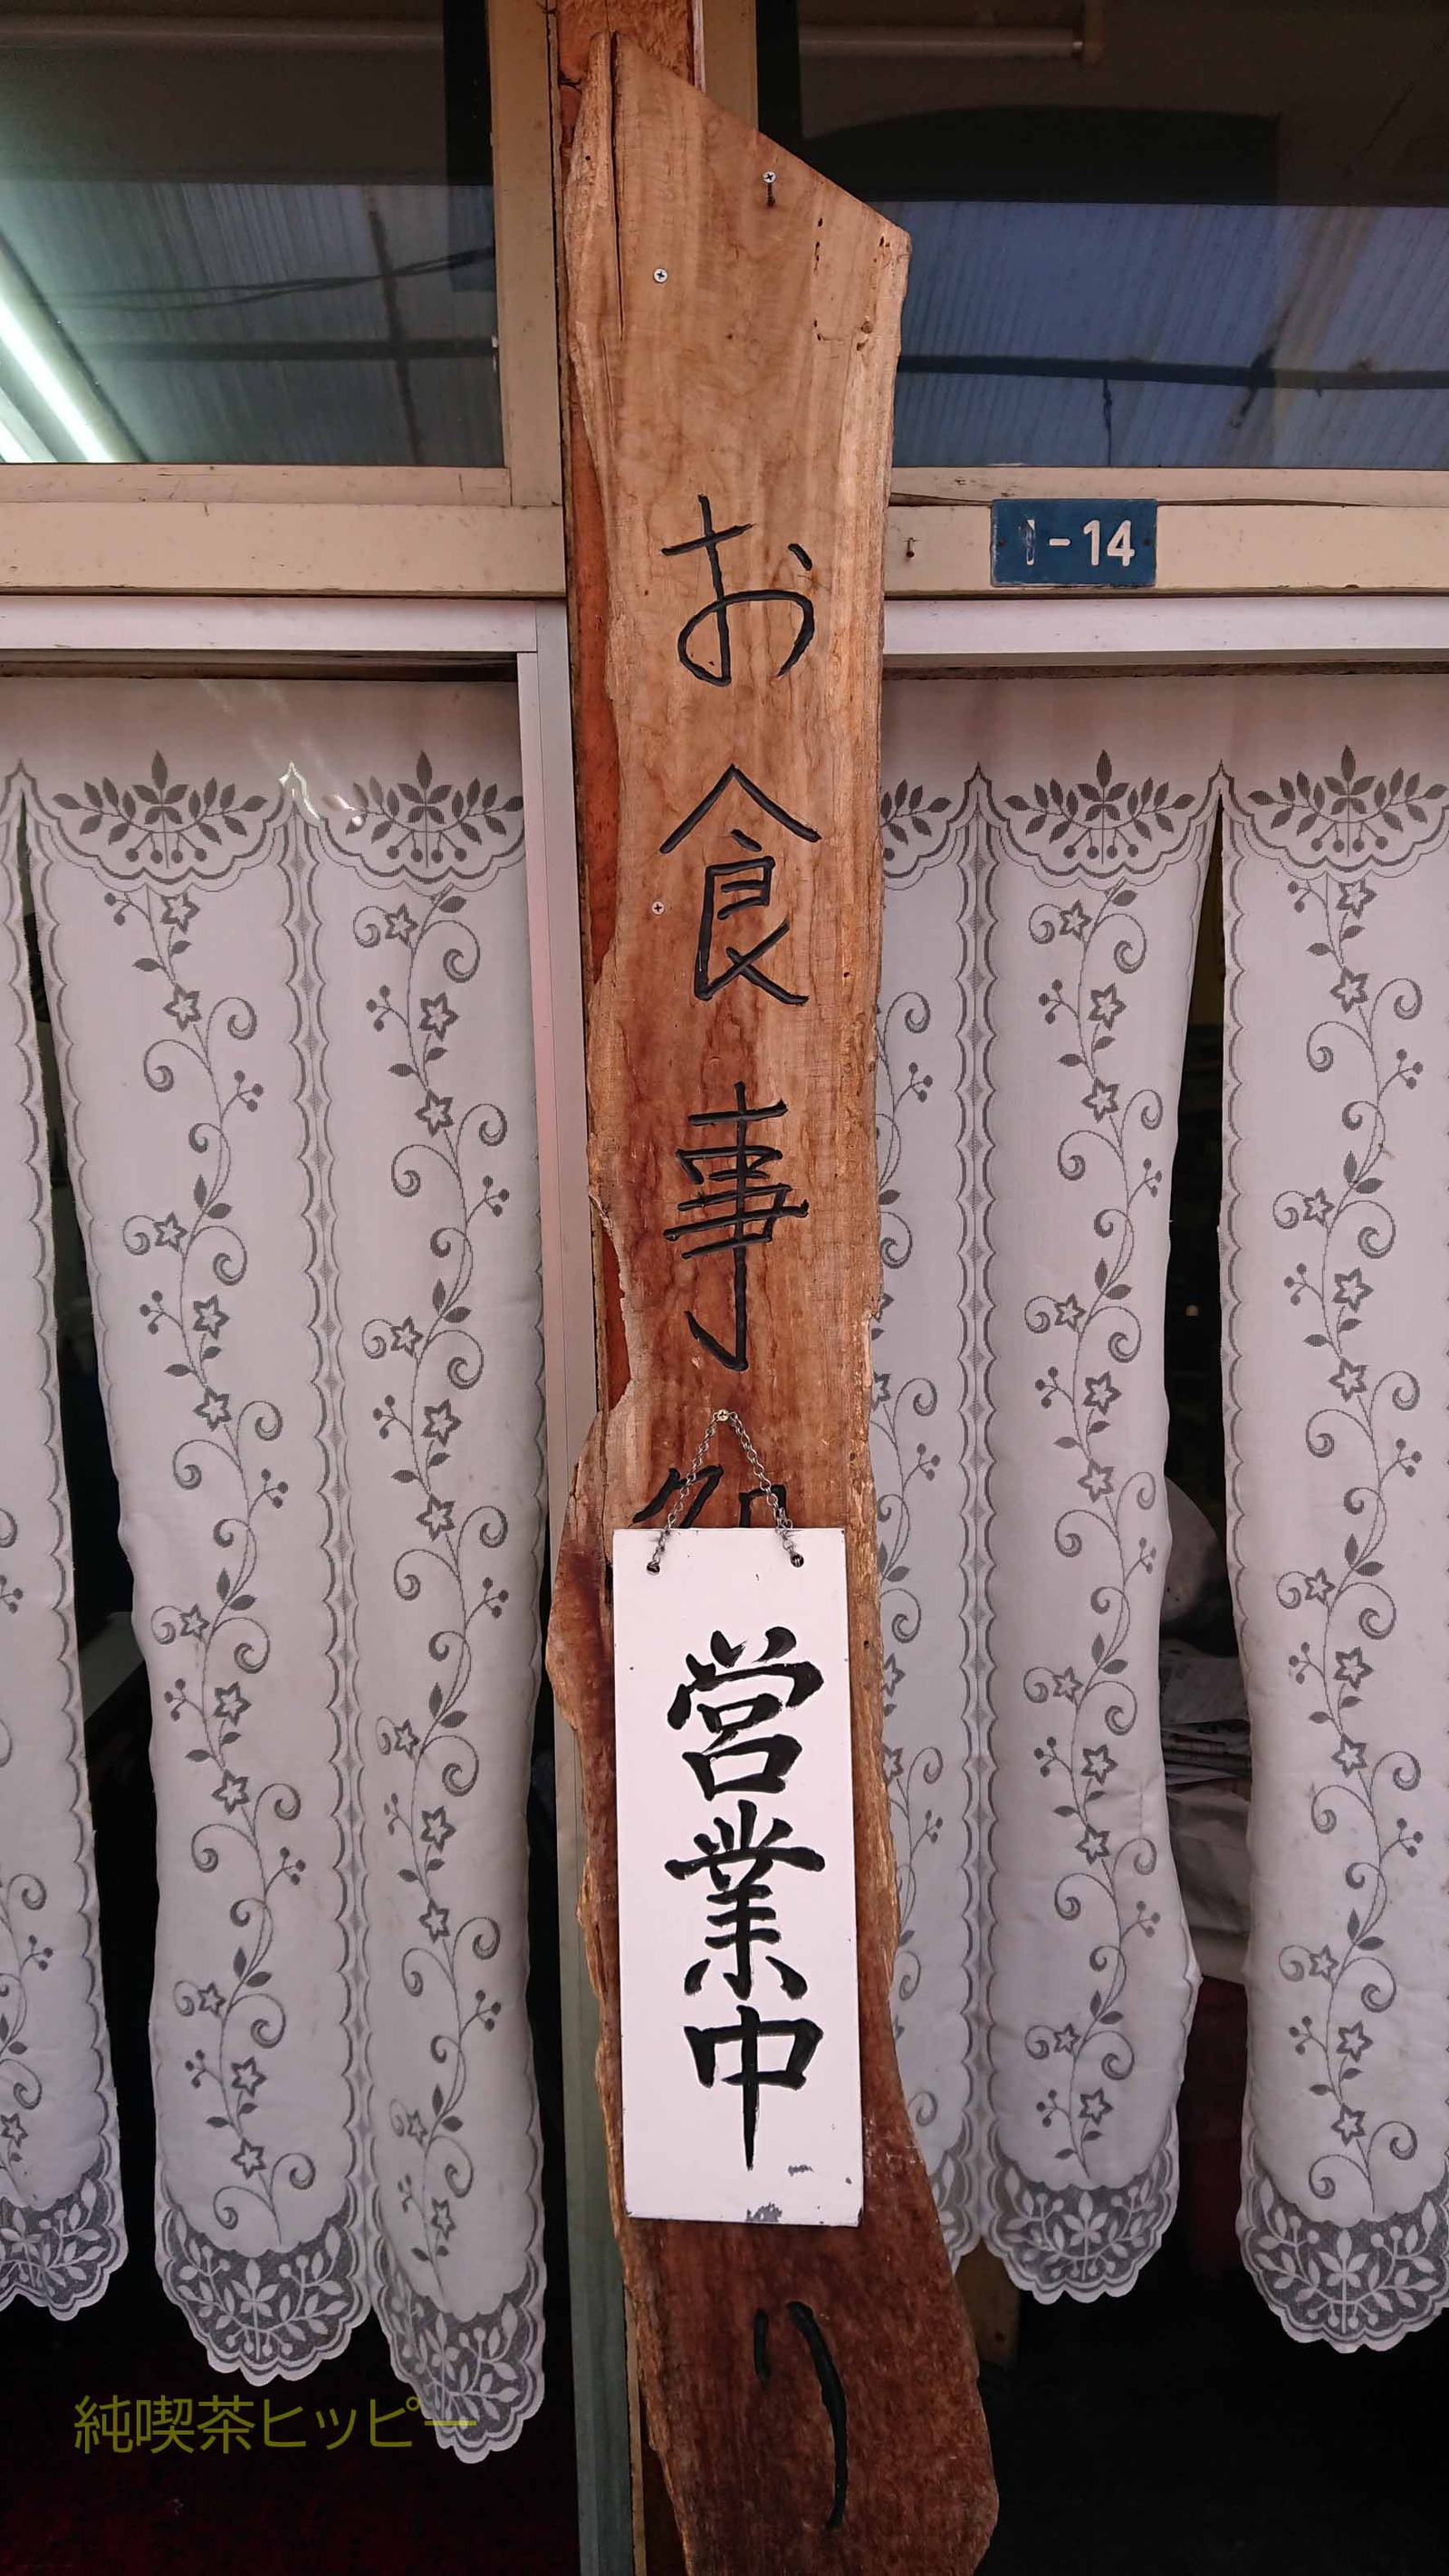 お食事処
営業中
り
1-14
純喫茶ヒッピー